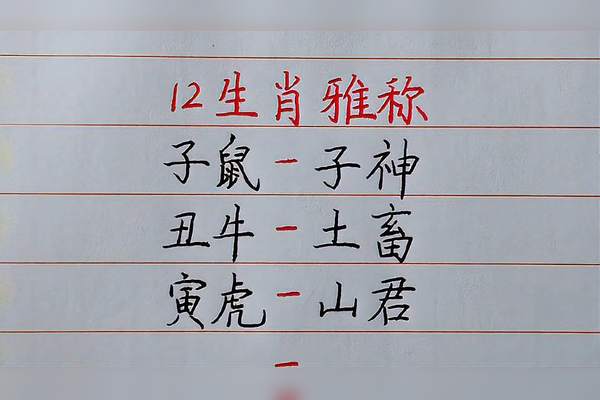 12生肖雅称
子鼠-子神
丑牛-土畜
寅虎-山君
-